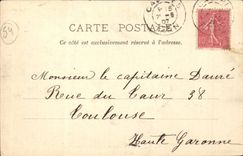 CARTE POSTALE
Ce côté est exclusivement réservé à l'adresse.
Monsieur le capitaine Dauré
Rue du Taur 38
Toulouse
Haute Garonne